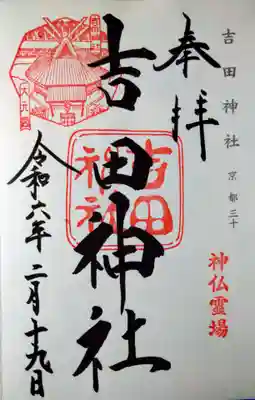 吉田神社 京都三十
神仏霊場
奉拝
吉田神社
吉田神社
大元宮
令和六年二月十九日